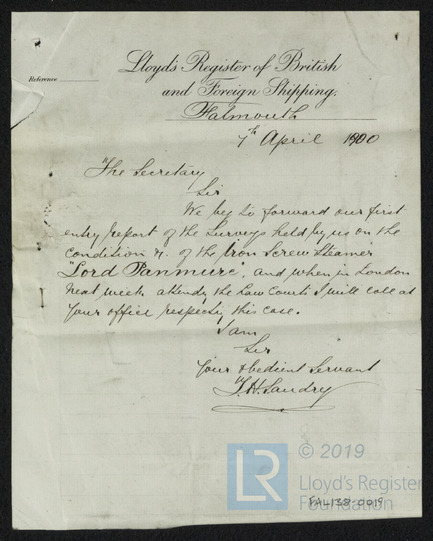 Lloyd's Register of British
and Foreign Shipping.
Reference
Falmouth
7th April 1900
The Secretary
Sir
We beg to forward our first
entry report of the Surveys held by us on the
Condition &c. of the Iron Screw Steamer
"Lord Panmure", and when in London
next week attendg the Law Courts I will call at
your office respectg this case.
I am
Sir
Your obedient Servant
H. Landry
© 2019
Lloyd's Register
Foundation
LR
FAL138-0019